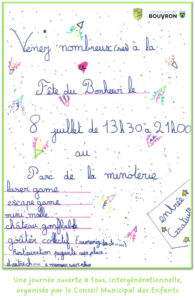 BOUVRON
Venez nombreux(ses) à la
Fête du Bonheur le
8 juillet de 13h30 à 21h00
au
Parc de la minoterie
laser game
escape game
mini molle
château gonflable
goûter collectif
Restauration payante sur place
entrée
Gratuite
Une journée ouverte à tous, intergénérationnelle,
organisée par le Conseil Municipal des Enfants